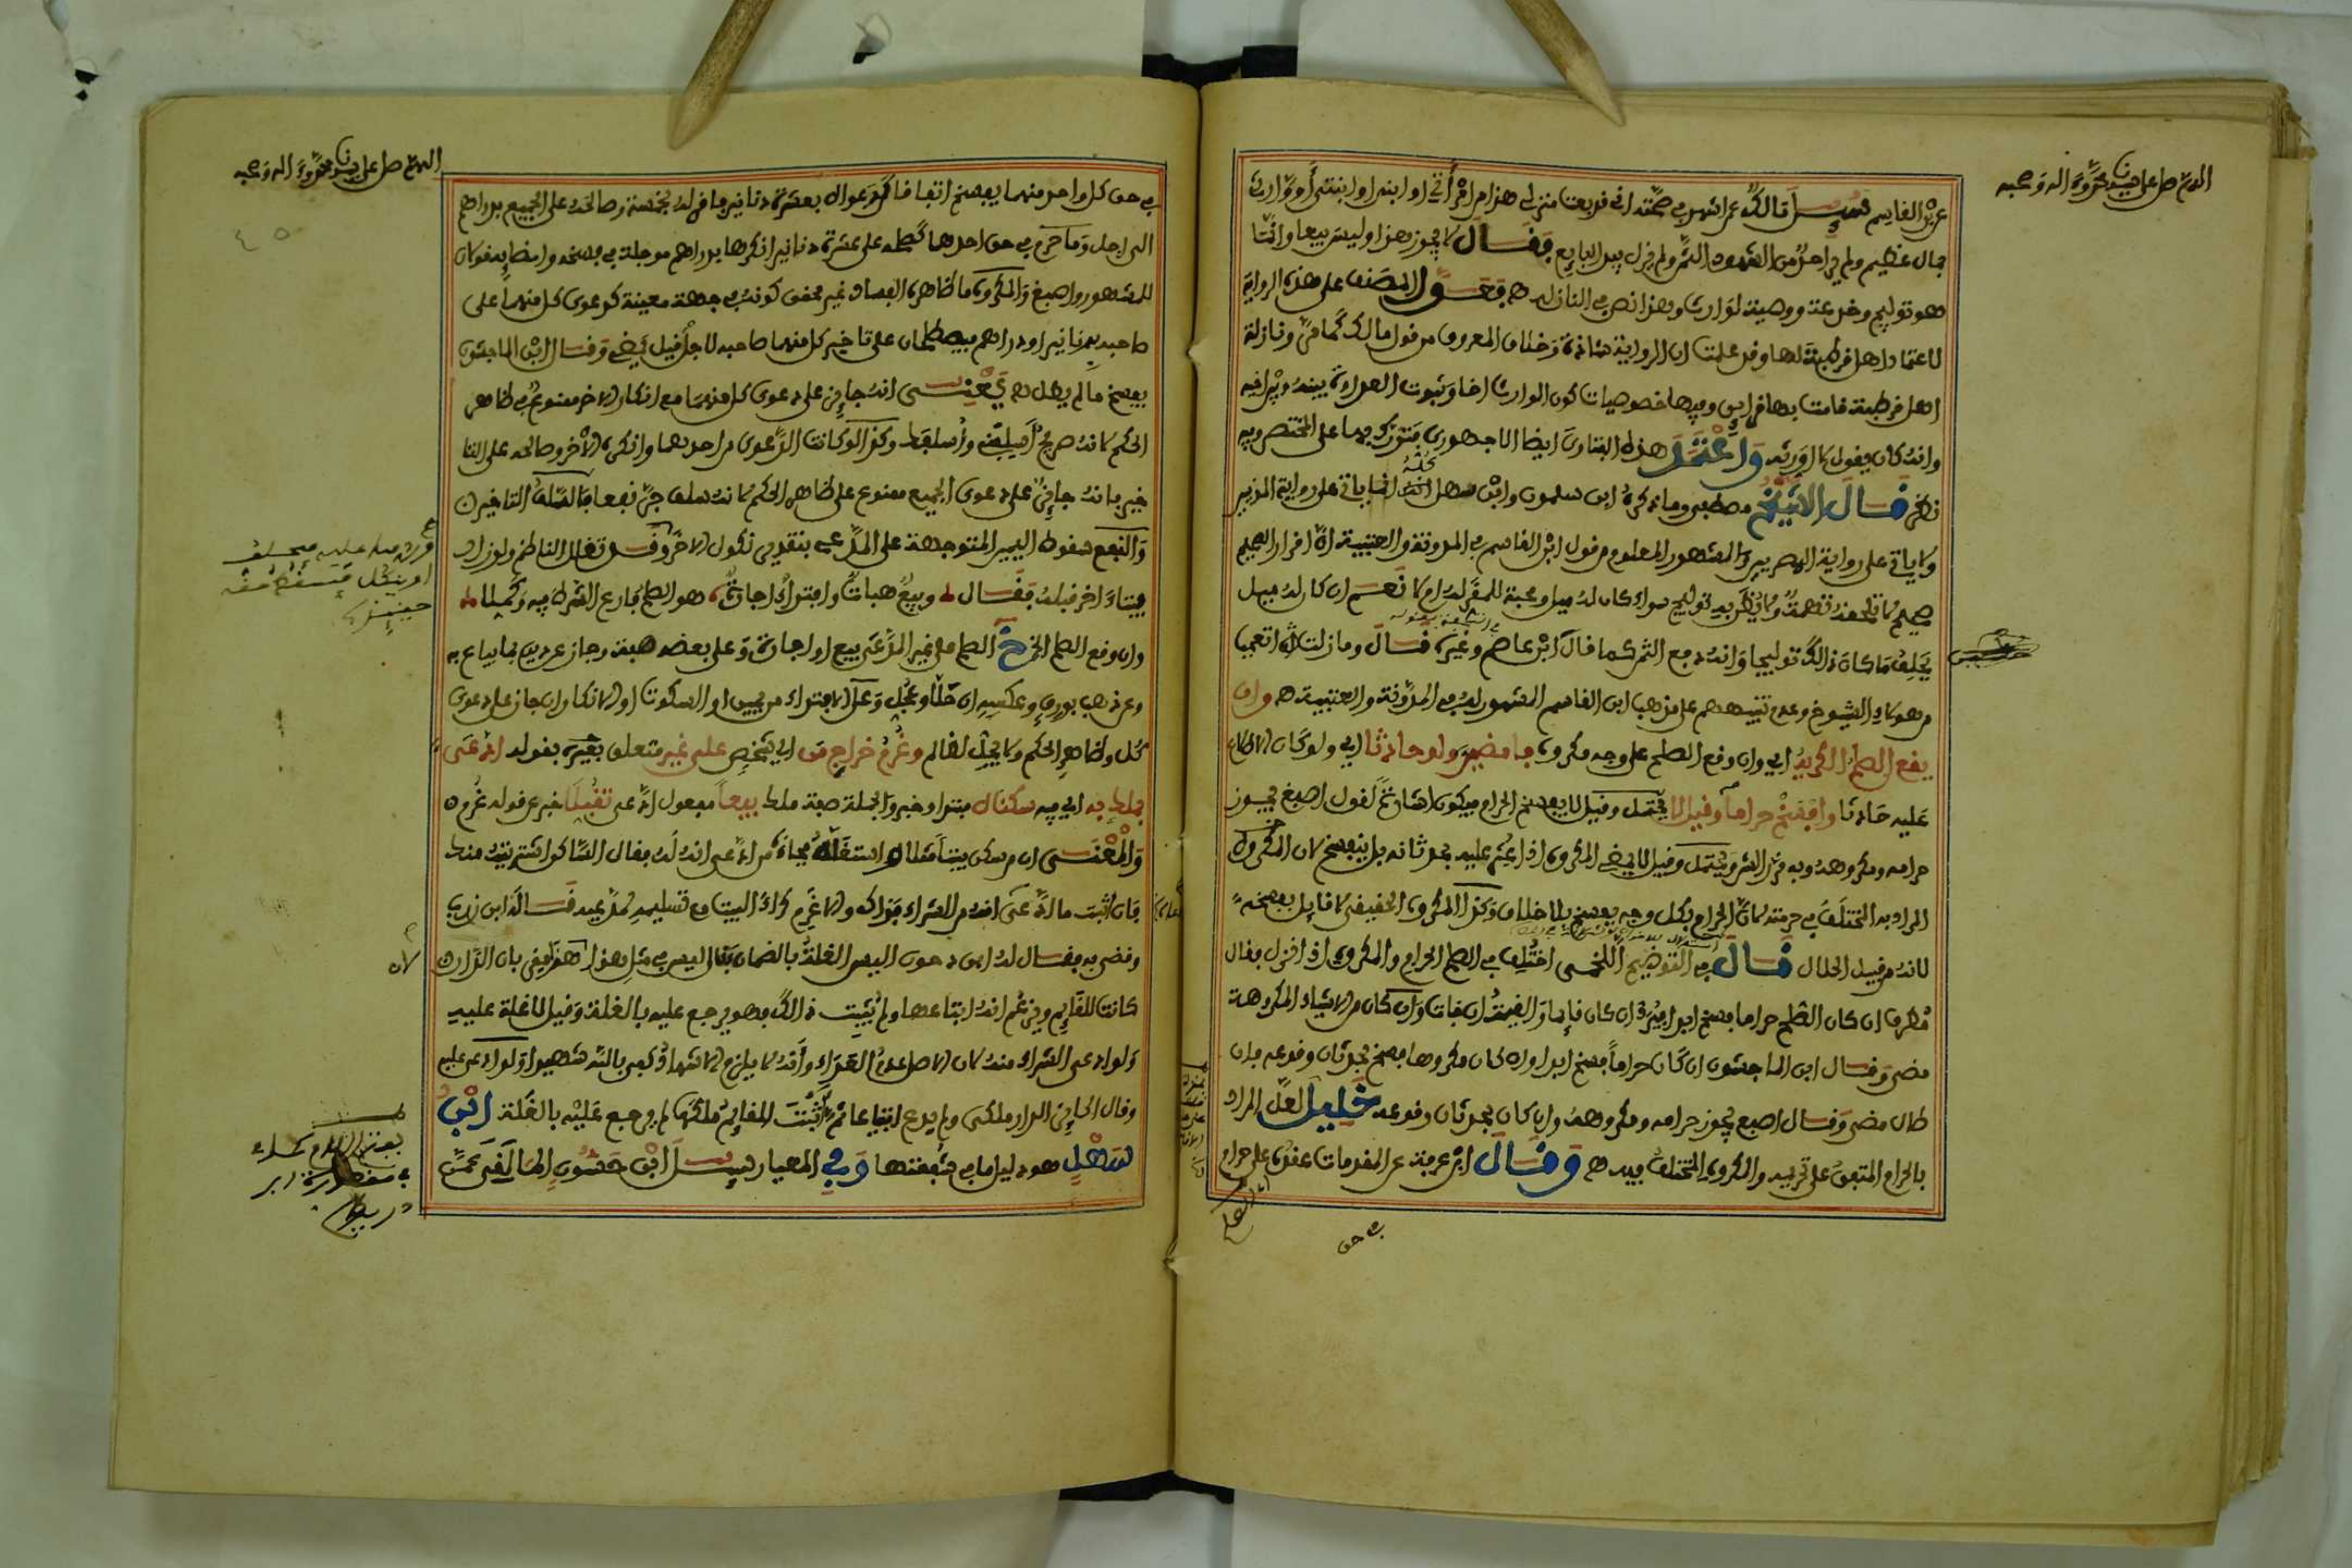 اللهم صل على سيدنا محمد وءاله وصحبه
عن ابن القاسم سيل مالك عمن اشهد في صحته اني قد بعت منزلي هذا من امرأتي او ابني او ابنتي أو وارث
بمال عظيم ولم ير احد من الشهود الثمن ولم يزل بيد البايع فقال لا يجوز هذا وليس بيعا وانما
هو توليج وخدعة ووصية لوارث وهذا نص في النازلة هـ فعول المصنف على هذه الرواية
لاعتماد اهل قرطبة لها وقد علمت ان الرواية شاذة وخلاف المعروف من قول مالك كما مر ونازلة
اهل قرطبة قامت بها قراين وفيها خصوصيات كون الوارث اخا وثبوت العداوة بينه وبين اخيه
وانه كان يقول لا اورثه واعتمد هذه الفتاوى ايضا الاجهوري فتورك بها على المختصر وفيه
نظر قال الشيخ مصطفى وما ذكره ابن سلمون وابن سهل كله انما ياتي على رواية المدنيين
ولا ياتي على رواية المصريين والمشهور المعلوم من قول ابن القاسم في المدونة والعتبية ان اقرار الصحيح
صحيح لا تلحقه تهمة ولا يظن به توليج سواء كان له ميل ومحبة للمقر له ام لا نعم ان كان له ميل
يحلف ما كان ذالك توليجا وانه دفع الثمن كما قال ابن عاصم وغيره قال وما زلت اتعجب
من هؤلاء الشيوخ وعدم تنبيههم على مذهب ابن القاسم المشهور له في المدونة والعتبية هـ وان
يقع الصلح الكريه اي وان وقع الصلح على وجه مكروه فامضين ولو حادثا اي ولو كان الاطلاع
عليه حادثا وافسخ حراما وقيل لا يحتمل وقيل لا يفسخ الحرام فيكون اشارة لقول اصبغ يجوز
حرامه ومكروهه وبه قرر الشرح ويحتمل وقيل لا يمضي المكروه اذا عثر عليه بحدثانه بل يفسخ لان المكروه
المراد به المختلف في حرمته لان الحرام بكل وجه يفسخ بلا خلاف وكذا المكروه الحقيقي لا قايل بفسخه
لانه من قبيل الحلال قال في التوضيح اللخمي اختلف في الصلح الحرام والمكروه اذا نزل فقال
مطرف ان كان الصلح حراما فسخ ابدا فيرد ان كان قايما والقيمة ان فات وان كان من الاشياء المكروهة
مضى وقال ابن الماجشون ان كان حراما فسخ ابدا وان كان مكروها فسخ بحدثان وقوعه فان
طال مضى وقال اصبغ يجوز حرامه ومكروهه وان كان بحدثان وقوعه خليل لعل المراد
بالحرام المتفق على تحريمه والمكروه المختلف فيه هـ وقال ابن عرفة عن المقدمات عقده على حرام
في حق
اللهم صل على سيدنا محمد وءاله وصحبه
في حق كل واحد منهما يفسخ اتفاقا كدعواه بعشرة دنانير فاقر له بخمسة وصالحه على الجميع بدراهم
الى اجل وما حرم في حق احدهما كصلحه على عشرة دنانير انكرها بدراهم موجلة في فسخه وامضايه قولان
للمشهور واصبغ والمكروه ما ظاهره الفساد غير محقق كونه في جهة معينة كدعوى كل منهما على
صاحبه بدنانير او دراهم فيصطلحان على تاخير كل منهما صاحبه لاجل قيل يمضي وقال ابن الماجشون
يفسخ ما لم يطل هـ يعني انه جايز على دعوى كل منهما مع انكار الاخر ممنوع في ظاهر
الحكم لانه صريح أسلفني وأسلفك وكذا لو كانت الدعوى من احدهما وانكره الاخر وصالحه على التا
خير فانه جايز على دعوى الجميع ممنوع على ظاهر الحكم لانه سلف جر نفعا فالسلف التاخير
والنفع سقوط اليمين المتوجهة على المدعى بتقدير نكول الاخر وقد نقل الناظم ولو زاد
بيتا ءاخر قبله فقال وبيع هبات وابتداء اجارة هو الصلح فادع الشرط فيه وكملا
وان وقع الصلح الخ الصلح على غير المدعى بيع او اجارة وعلى بعضه هبة وجاز عن دين بما يباع به
وعن ذهب بورق وعكسه ان حلا وعجل وعلى الافتداء من يمين او السكوت او الانكار ان جاز على دعوى
كل وظاهر الحكم ولا يحل لظالم وغرم خراج من اي شخص على غير متعلق بغيره بقوله ادعى
بملك به اي فيه سكناه مبتدا وخبر والجملة صفة ملك بيعا مفعول ادعى تقبلا خبر عن قوله غرم
والمعنى ان من سكن بيتا مثلا او استغله فجاءه من ادعى انه له فقال الساكن اشتريته منك
فان اثبت ما ادعى انه من الشراء فذاك والا غرم كراء البيت مع تسليمه لمدعيه قال ابن زرب
وقضى به فقال له ابن دحون اليس الغلة بالضمان فقال ليس في مثل هذا هذا يقر بان الدار
كانت للقايم وزعم انه ابتاعها ولم يثبت ذالك فهو يرجع عليه بالغلة وقيل لا غلة عليه
ولو ادعى الشراء منه لان الاصل عدم العداء وأنه لا يلزم الاشهاد وكفى بالله شهيدا ولو ادعى عليه
وقال الحايز الدار ملكي ولم يدع ابتياعا ثم أثبت القايم ملكها لم يرجع عليه بالغلة ابن
سهل هو دليل ما في شفعتها وفي المعيار سيل ابن حشون المالقي عمن